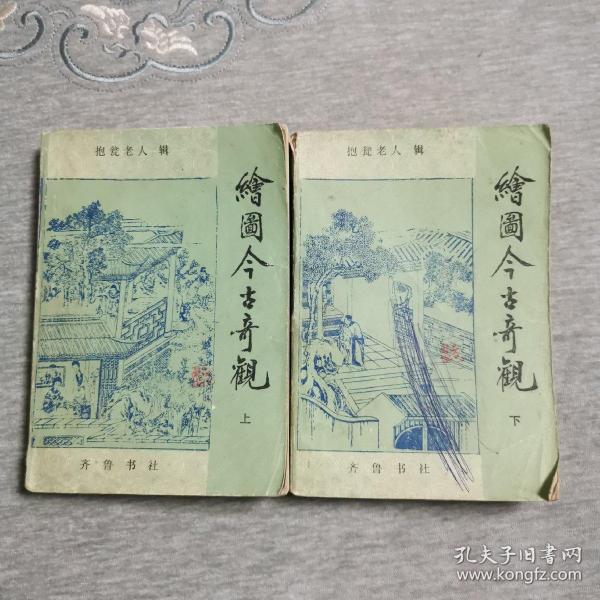 抱瓮老人 辑
繪圖今古奇觀
上
齐鲁书社
抱瓮老人 辑
繪圖今古奇觀
下
齐鲁书社
孔夫子旧书网
www.kongfz.com